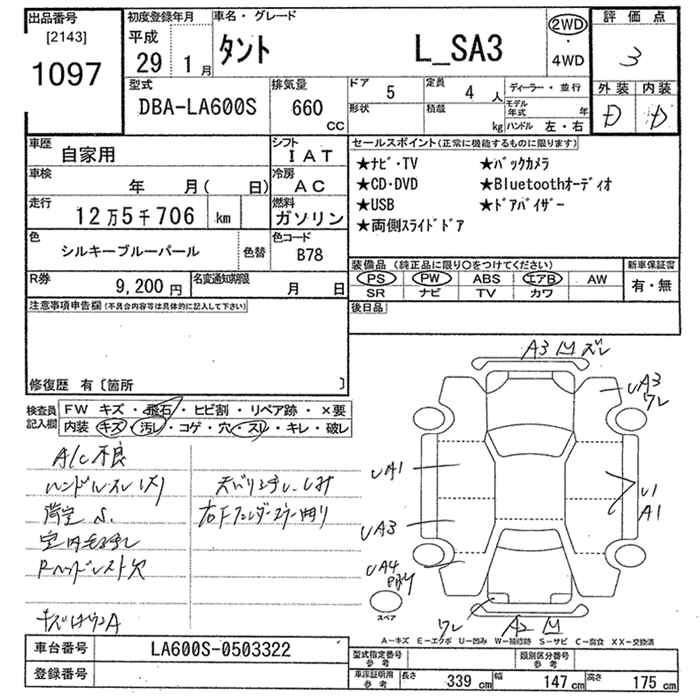 出品番号
[2143]
1097
初度登録年月
平成
29 1月
車名・グレード
タント L_SA3
2WD
・
4WD
評価点
3
外装 内装
D D
型式
DBA-LA600S
排気量
660
CC
ドア
5
定員
4人
ディーラー・並行
形状
積載
kg
モデル年式 年
ハンドル 左・右
車歴
自家用
シフト
IAT
車検
年 月( 日)
冷房
AC
走行
12万5千706 km
燃料
ガソリン
色
シルキーブルーパール
色替
色コード
B78
R券
9,200円
名変通知期限
月 日
セールスポイント(正常に機能するものに限ります)
★ナビ・TV ★バックカメラ
★CD・DVD ★Bluetoothオーディオ
★USB ★ドアバイザー
★両側スライドドア
装備品 (純正品に限り〇をつけてください)
新車保証書
PS PW ABS エアB AW
SR ナビ TV カワ
有・無
後日品
注意事項申告欄(不具合内容等は具体的に記入して下さい)
修復歴 有〔箇所 〕
検査員記入欄
FW キズ・飛石・ヒビ割・リペア跡・×要
内装 キズ・汚レ・コゲ・穴・スレ・キレ・破レ
A/C不良
ハンドルスレ
荷室 S.
Rヘッドレスト欠
右Fフェンダーミラー
A3 ズレ
UA3
ワレ
UA1
U1
A1
UA3
UA4
ワレ
A2
スペア
A−キズ E−エクボ U−凹み W−補修跡 S−サビ C−腐食 XX−交換済
車台番号
LA600S-0503322
登録番号
型式指定番号
参考
類別区分番号
参考
車庫証明用
参考
長さ 339 cm 幅 147 cm 高さ 175 cm